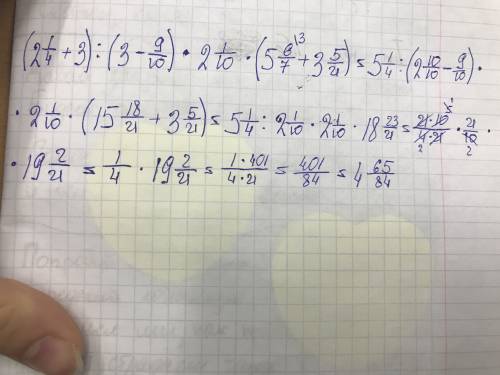 (2 1/4 + 3) : (3 - 9/10) · 2 1/10 · (5 6/7 ^13 + 3 5/21) = 5 1/4 : (2 10/10 - 9/10) ·
· 2 1/10 · (15 18/21 + 3 5/21) = 5 1/4 : 2 1/10 · 2 1/10 · 18 23/21 = 21·10 5/4·21 2 · 21/10 2 ·
· 19 2/21 = 1/4 · 19 2/21 = 1·401/4·21 = 401/84 = 4 65/84